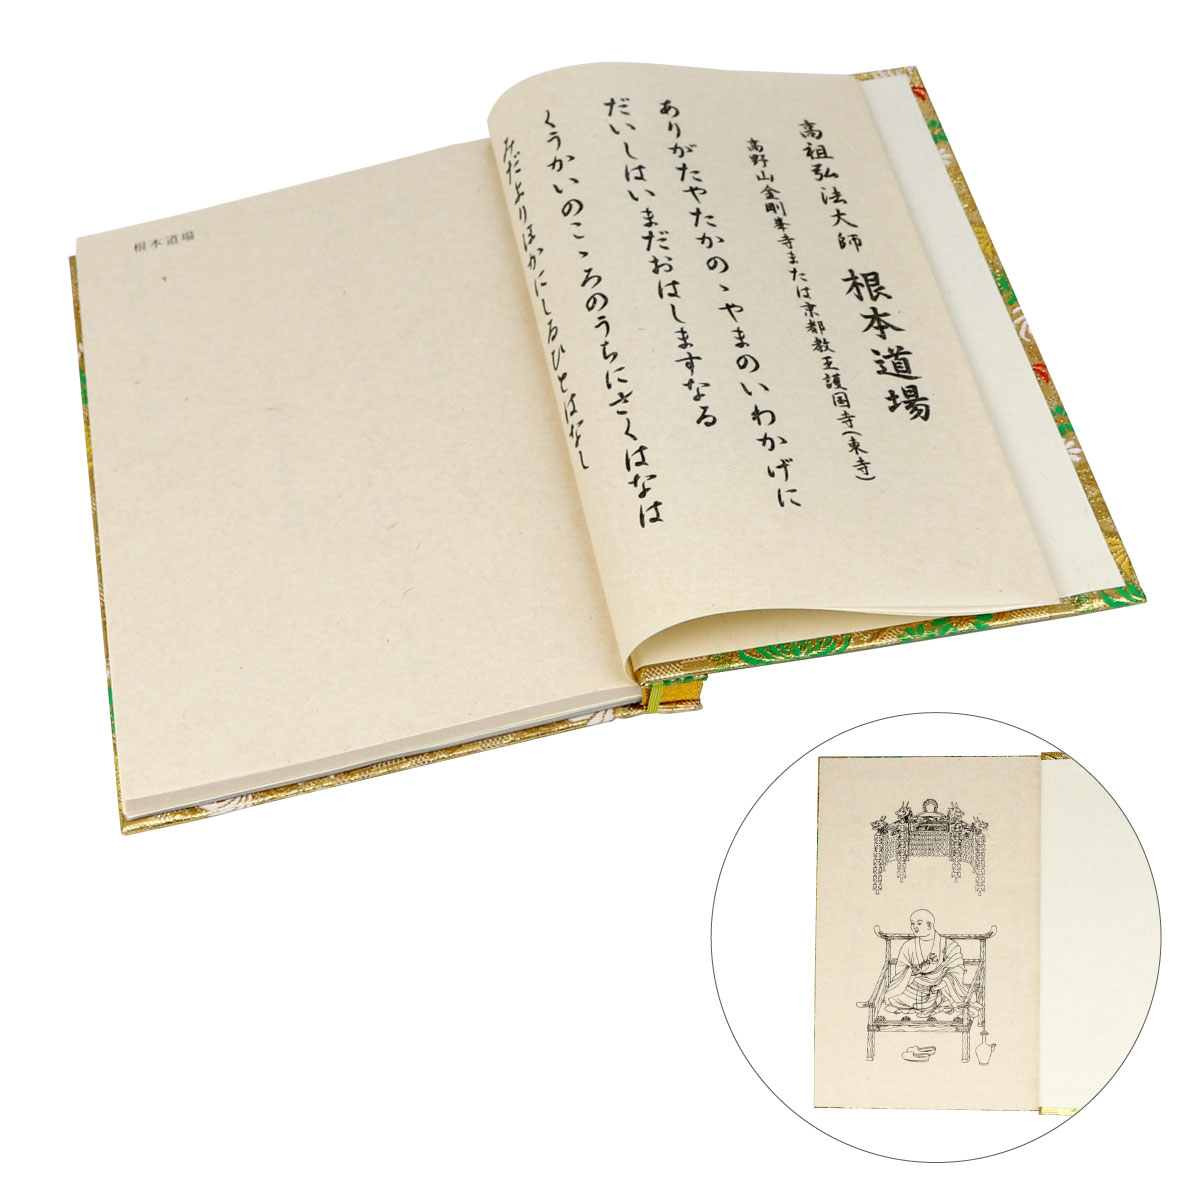 高祖弘法大師 根本道場
高野山金剛峯寺または京都教王護国寺(東寺)
ありがたやたかのゝやまのいわかげに
だいしはいまだおはしますなる
くうかいのこゝろのうちにさくはなは
みだよりほかにしるひとはなし
根本道場